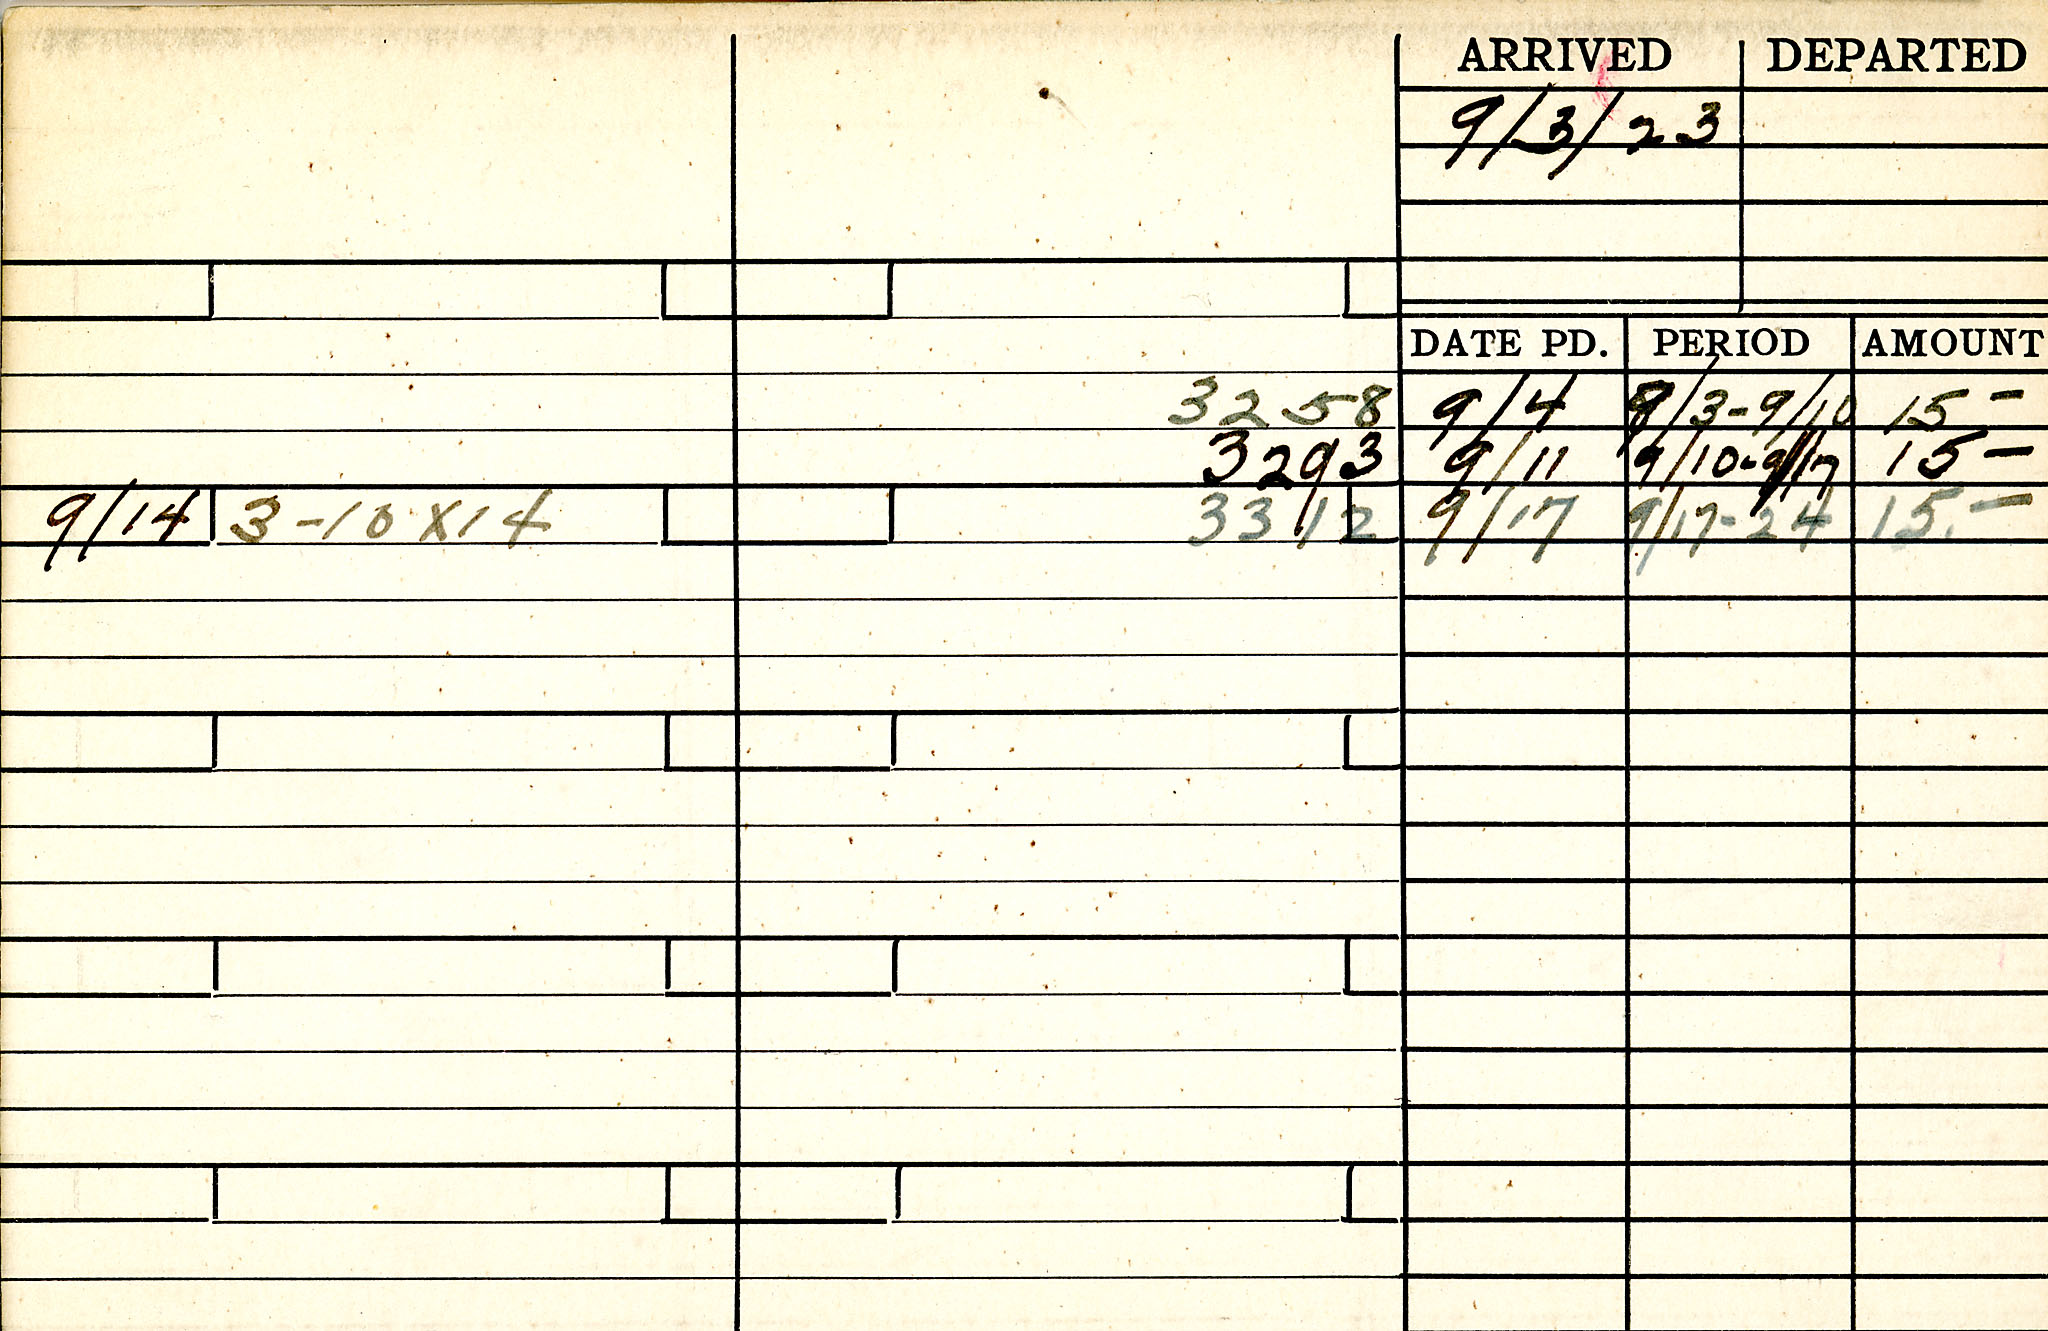 ARRIVED DEPARTED
9/3/23
DATE PD. PERIOD AMOUNT
3258 9/4 9/3-9/10 15-
3293 9/11 9/10-9/17 15-
9/14 3-10X14 3312 9/17 9/17-24 15.-